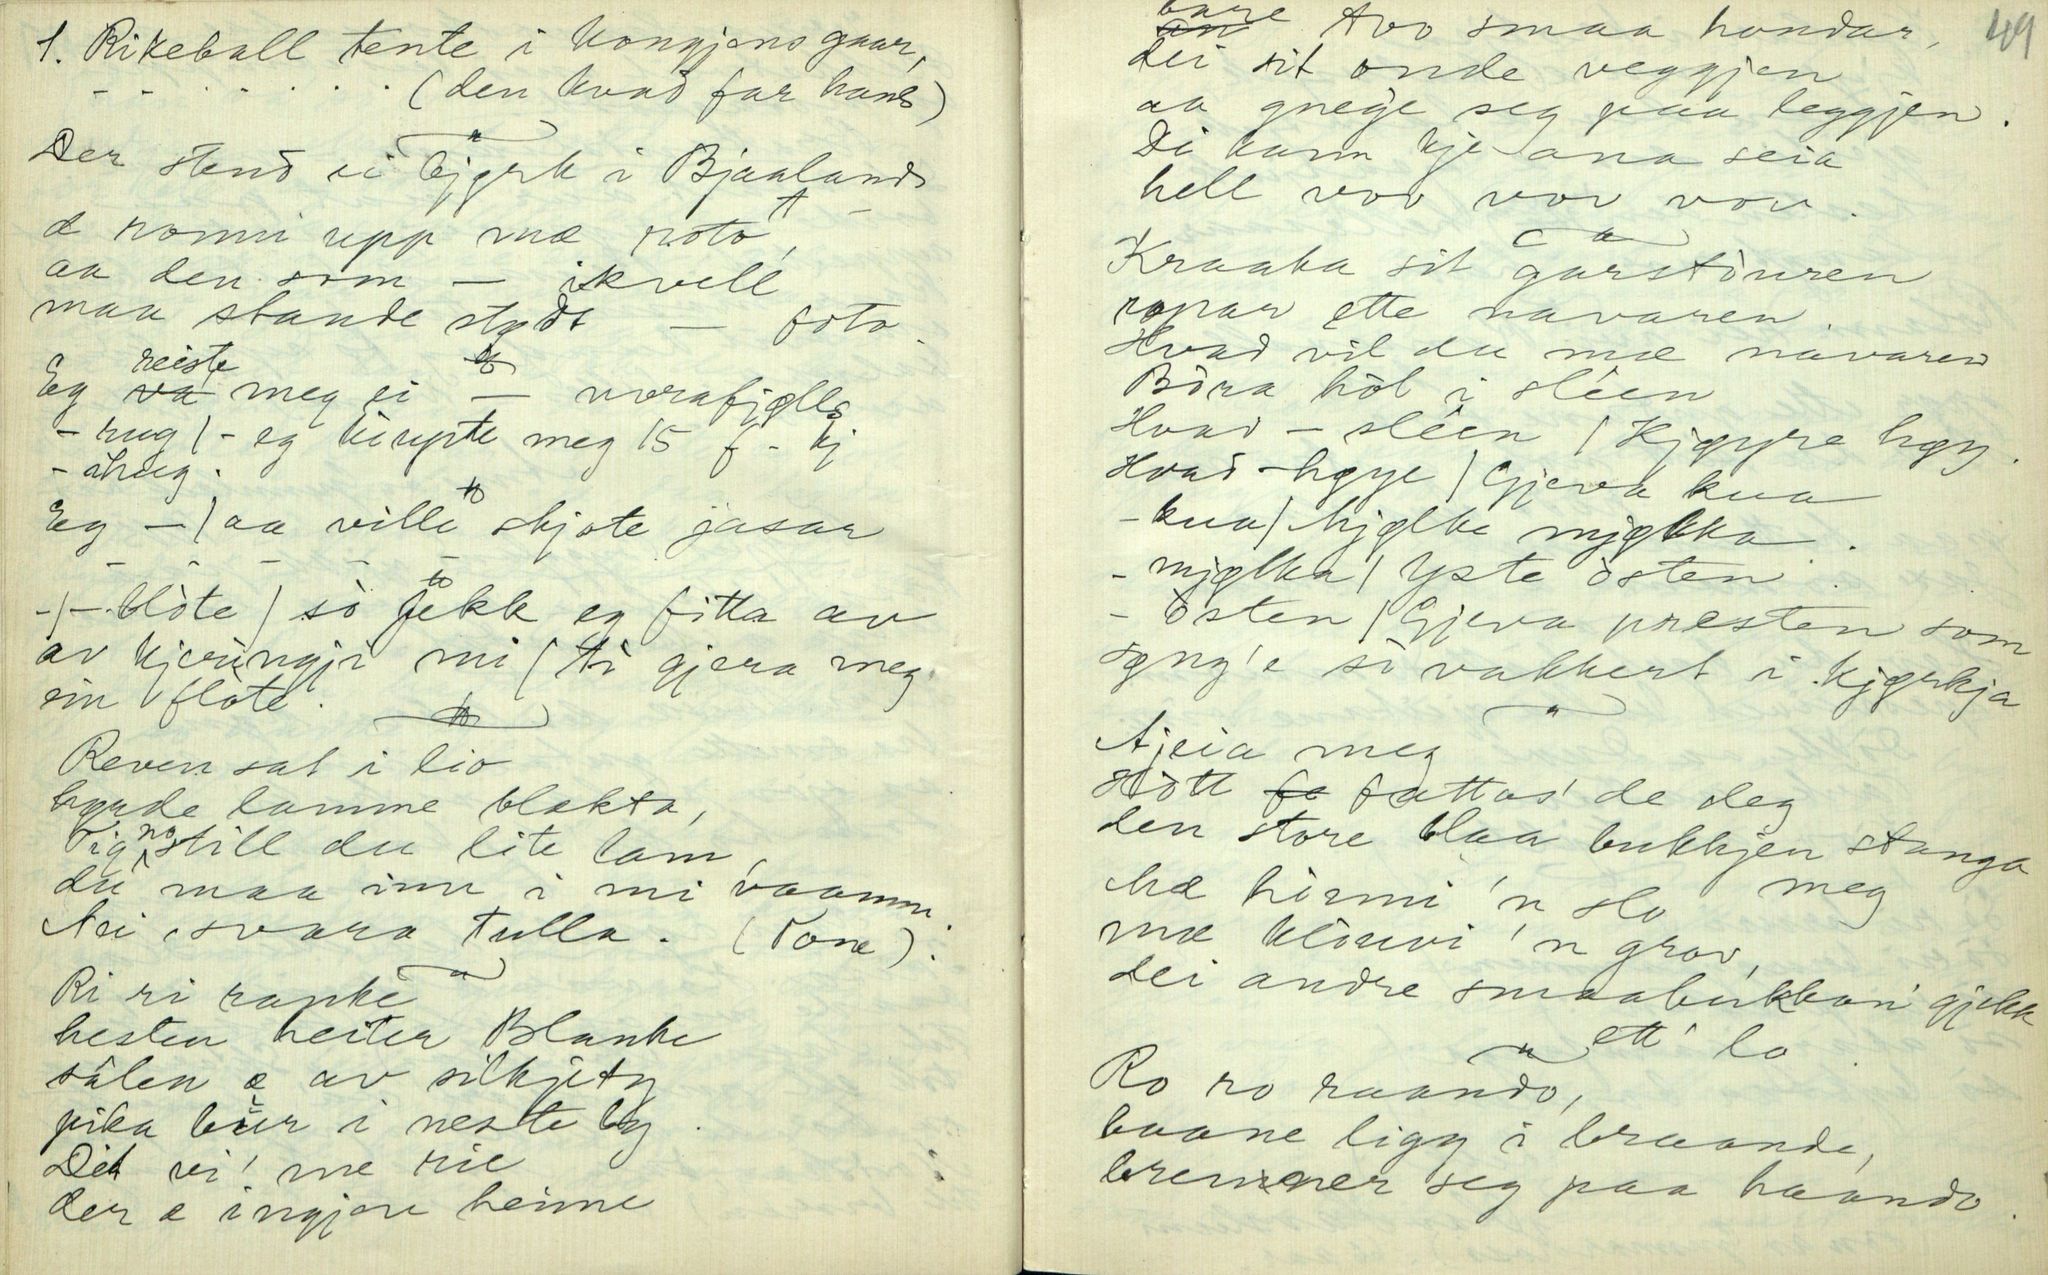 1. Rikeball tente i kongjens gaar,
- - - - - - - (den kvad far hans)
Der stend ei bjørk i Bjaaland
æ ronni upp mæ roto,
aa den som — ikvell
maa stande stydt — foto.
Eg reiste meg ei — uvrafjølls
- rug / - eg kinypte meg 15 f - kj
- åhug.
Eg — / aa ville skjote jasar
- - - - -
-/- blòte / sò fekk eg fitta av
av kjeringji mi / ti gjera meg
ein flòte.
Reven sat i lio
høyrde lamme blakta,
Tig no still du lite lam,
du maa inn i mi vaamm.
Nei, svara Tulla. (Tone).
Ri ri ranke
hesten heiter Blanke
sålen æ av silkjety
pika bur i neste by.
Dit vi' me rie
der æ ingjen heime
49
bare tvo smaa hondar,
dei sit onde veggjen
aa gnege seg paa leggjen.
Di kann kje ana seia
hell vov vov vov.
Kraaka sit garstòuren
ropar ette navaren.
Hvad vil du mæ navaren
Bòra hòl i slêen
Hvad - slêen / Kjøyre høy.
Hvad - høye / Gjeva kua
- kua / Mjølke mjølka.
- mjølka / Yste òsten.
- òsten / Gjeva presten som
syng'e sò vakkert i kjørkja
Ajeia meg
Hòtt fe fattas' de deg
den store blaa bukkjen stanga
meg
Mæ hinni 'n slo
mæ klòuvi 'n grov,
dei andre smaabukkan' gjekk
ett' lo
Ro ro raando,
baane ligg i braande,
brenner seg paa haando.